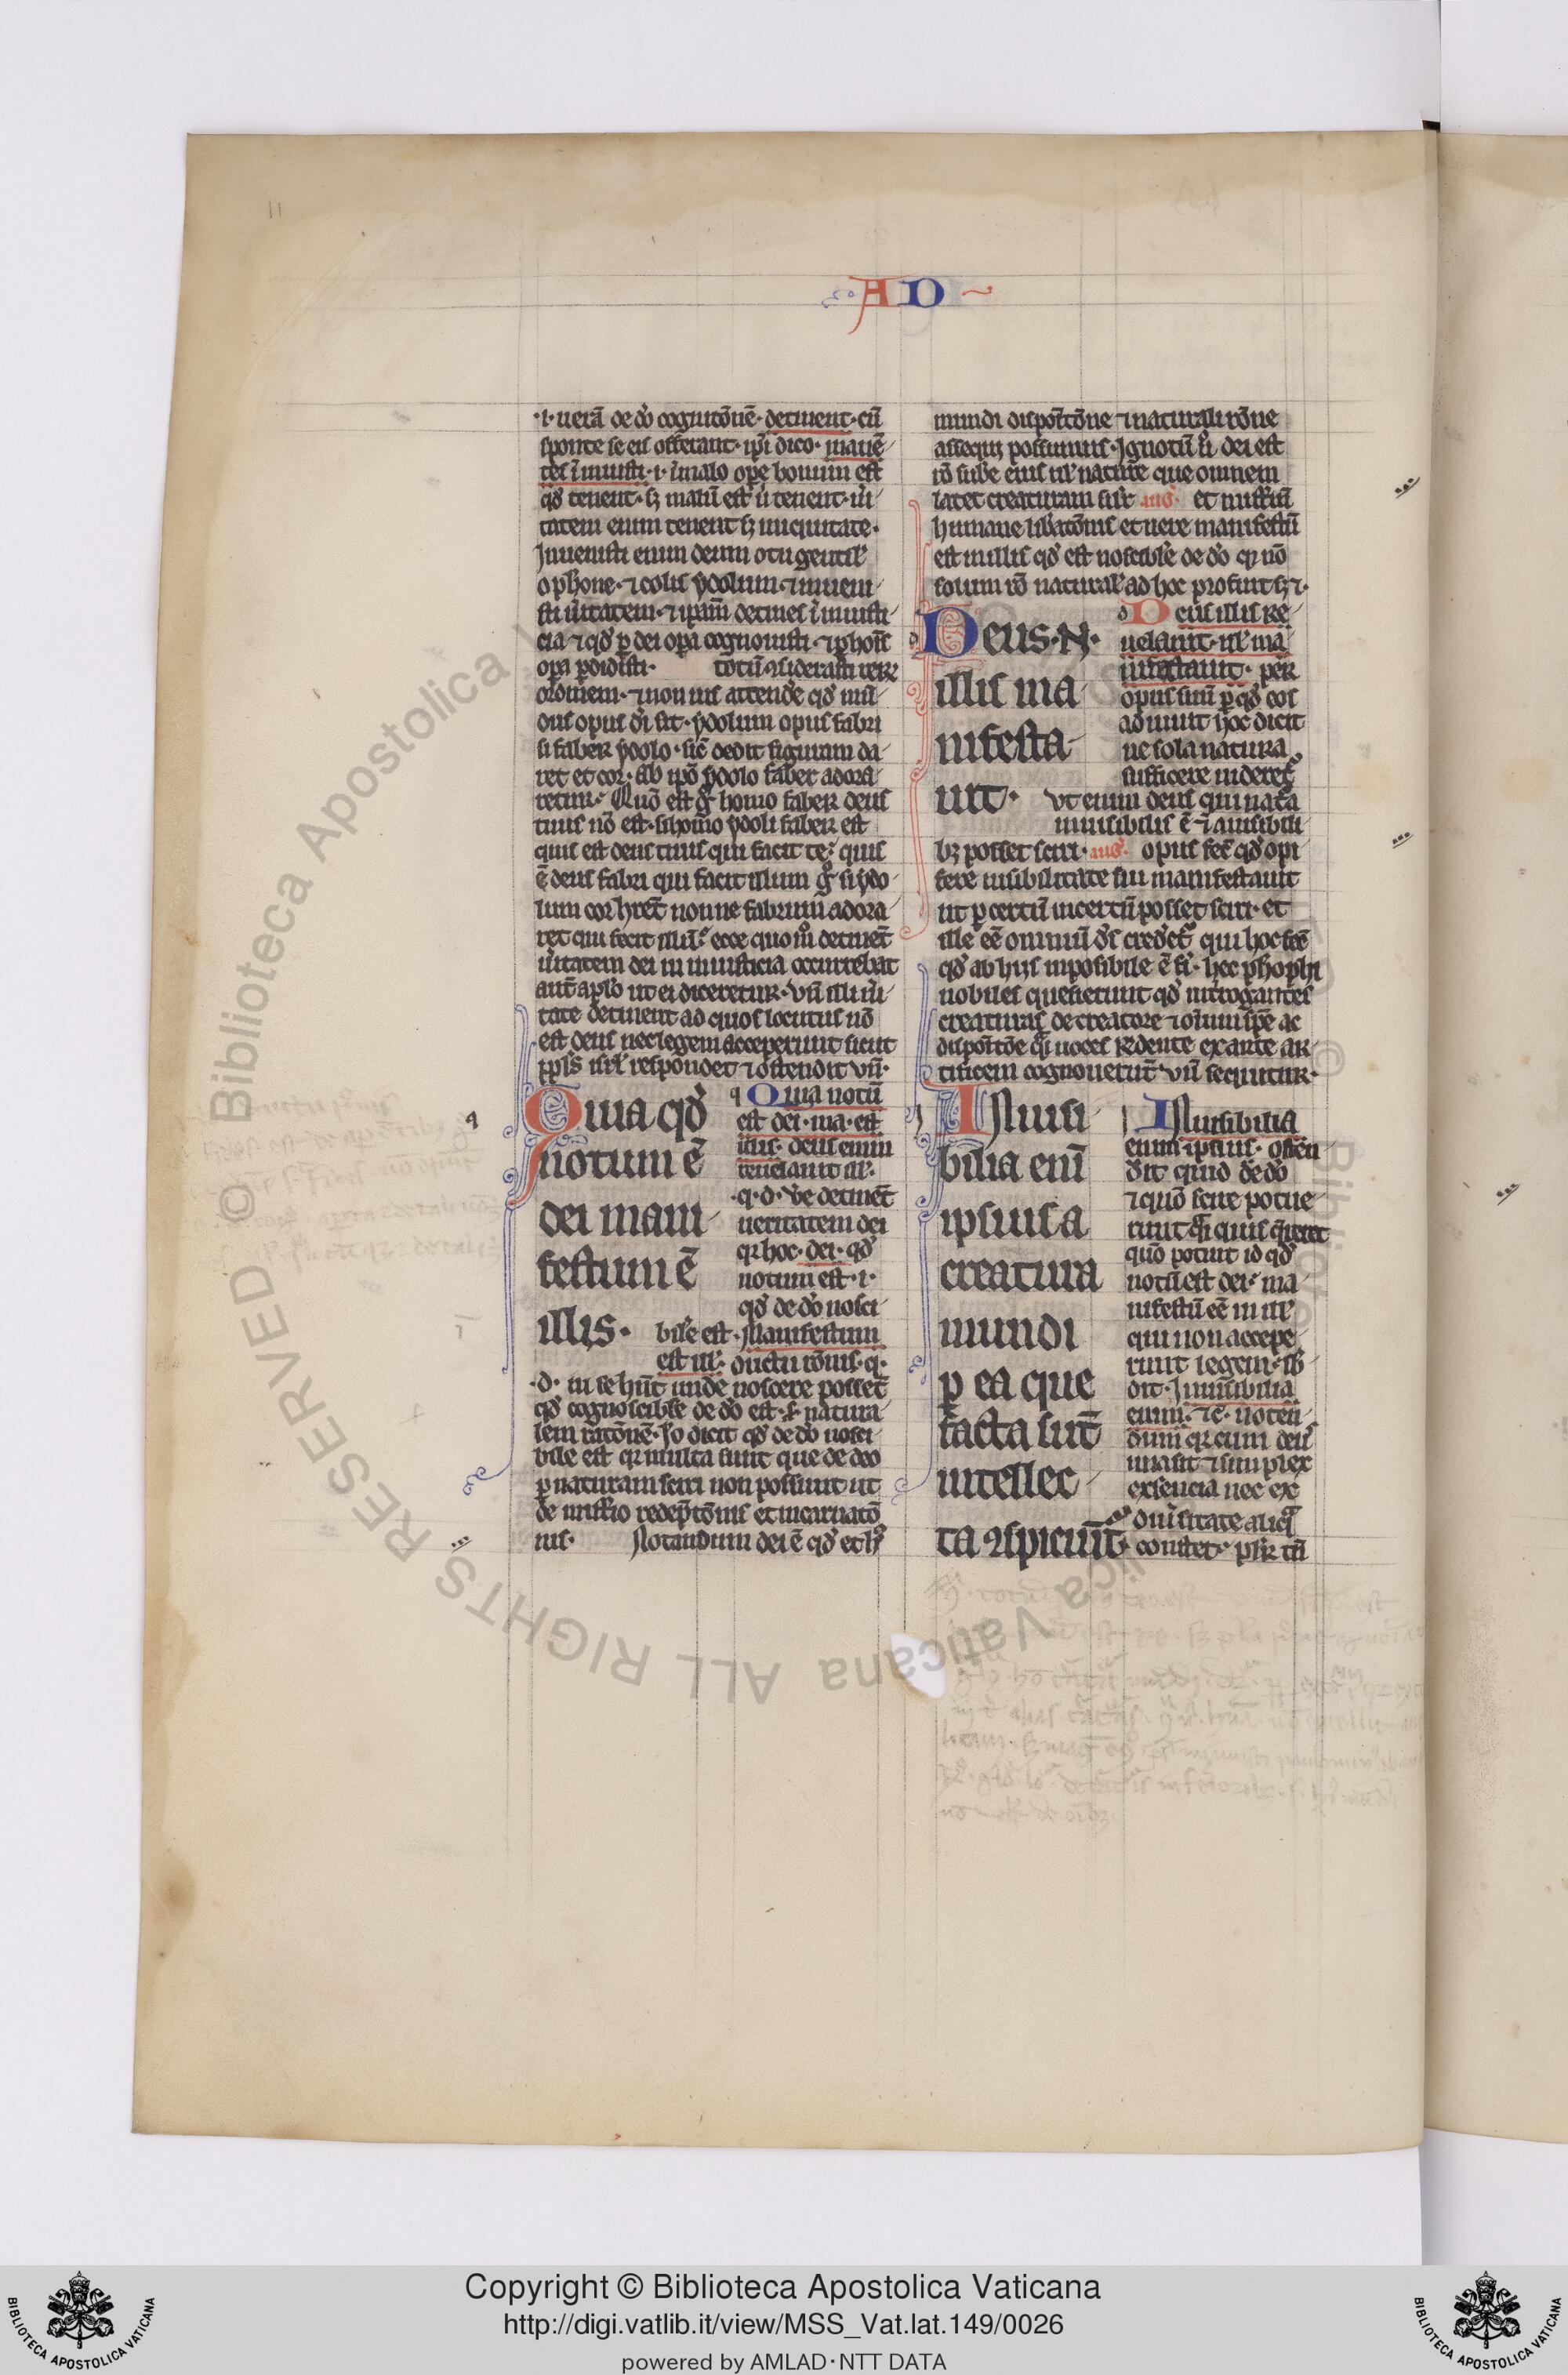 A D
·i· uerā de do cognitōnē· detinent· cū
sponte se eis offerant· ip̄i dico· manē
tes ī iniusti·i· ī malo ope bonum est
qd̕ tenent· sꝫ malū est ū tenent· ūi
tatem enim tenent sꝫ iniquitate·
Inuenisti enim deum o tu gentil̕
o ph̄one· ⁊ colis ydolum· ⁊ inueni
sti ūitatem· ⁊ ipsam detines ī iniusti
cia ⁊ qd̕ ꝑ dei opa cognouisti· ⁊ ꝑ hoīs
opa ꝑdidisti· totū ꝯsiderasti rerꝝ
ordinem· ⁊ non uis attende qd̕ mū
dus opus di sit· ydolum opus fabri
si faber ydolo· sic̄ dedit figuram da
ret et cor· ab ipō ydolo faber adora
retur· Quō est g̊ homo faber deus
tuus nō est· si homo ydoli faber est
quis est deus tuus qui facit te· quis
ē deus fabri qui facit illum g̊ si ydo
lum cor hr̄et nonne fabrum adora
ret qui fecit illū· ecce quom̊ detinet̄
ūitatem dei in iniusticia occurrebat
aut̄ aplo ut ei diceretur· Vn̄ illi ūi
tate detinent ad quos locutus nō
est deus nec legem acceperunt sicut
ppl̄s isr̄l respondet ⁊ ostendit vn̄·
Quia qd̕
notum ē
dei mani
festum ē
illis·
q Quia notū
est dei· ma· est
illis· deus enim
reuelauit ill̕·
·q·d· Ve detinet̄
ueritatem dei
qr hoc· dei· qd̕
notum est·i·
qd̕ de do nosci
bile est· Manifestum
est ill̕· ductu rōnis· q·
·d· in se hn̄t unde noscere posset̄
qd̕ cognoscibile de do est· s· natura
lem ratōnē· Io dicit qd̕ de do nosci
bile est qr multa sunt que de deo
ꝑ naturam sciri non possunt ut
de mist̄io redēptōnis et incarnatō
nis· Notandum dei ē qd̕ et h̊
mundi disposit̄ōne ⁊ naturali rōne
assequi possumus· Ignotū ū dei est
rō sub̄e eius ul̕ nature que omnem
latet creaturam sūt aug̕· et mist̄iū
humane lib̄atōnis et uere manifestū
est in illis qd̕ est noscibile de do qr nō
solum rō natural̕ ad hoc profuit sꝫ ⁊·
Deus·N·
illis ma
nifesta
uit·
d Deus illis re
uelauit· ul̕ ma
nifestauit· per
opus suū ꝑ qd̕ eos
adiuuit hoc dicit
ne sola natura
sufficere uideret̕
vt enim deus qui nat̄a
inuisibilis ē ⁊ a uisibili
bꝫ posset sciri· aug̕· opus fec̄ qd̕ opi
fice uisibilitate sui manifestauit
ut ꝑ certū incertū posset sciri· et
ille eē omniū d̄s cred̕et̕ qui hoc fec̄
qd̕ ab hijs inpossibile ē fi· hec ph̄oph̄i
nobiles quesierunt qd̕ int̄rogantes
creaturas de creatore ⁊ oīum spē ac
disposit̄ōe q̄i uoces reddente ex arte ar
tificem cognouerunt̄· vn̄ sequitur·
Inuisi
bilia enī
ipsius a
creatura
mundi
ꝑ ea que
facta sut̄
intellec
ta ꝯspiciūt·
Inuisibilia
enim ipsius· osten
dit quid de do
⁊ quō scire potue
runt q̄i quis quereret
quō potuit id qd̕
notū est dei· ma
nifestū eē in ill̕
qui non accepe
runt legem· sb̄
dit· Inuisibilia
enim· ⁊c̄· noten
dum qr cum deus
una sit ⁊ simplex
essencia nec ex
diūsitate aliq̄
constet· plr̄ tn̄
Copyright © Biblioteca Apostolica Vaticana
http://digi.vatlib.it/view/MSS_Vat.lat.149/0026
powered by AMLAD·NTT DATA
BIBLIOTECA APOSTOLICA VATICANA
BIBLIOTECA APOSTOLICA VATICANA
© Biblioteca Apostolica Vaticana ALL RIGHTS RESERVED